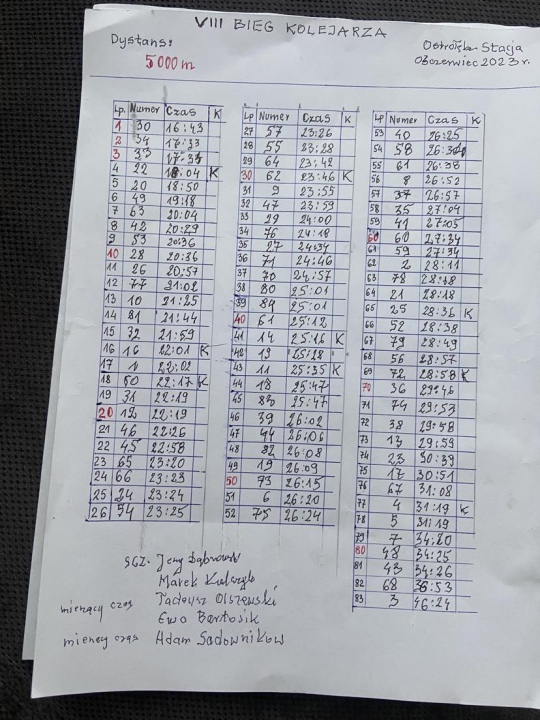 VIII BIEG KOLEJARZA
Dystans:
5000 m
Ostrołęka Stacja
czerwiec 2023 r.
Lp. Numer Czas K
1 30 16:43
2 34 17:33
3 33
4 22 18:04 K
5 20 18:50
6 49 19:18
7 63 20:04
8 42 20:29
9 53 20:36
10 28 20:36
11 26 20:57
12 77 21:02
13 10 21:25
14 81 21:44
15 32 21:59
16 16 22:01 K
17 1 22:02
18 60 22:17 K
19 31 22:19
20 22:19
21 46 22:26
22 45 22:58
23 65 23:20
24 66 23:23
25 24 23:24
26 54 23:25
Lp Numer Czas K
27 57 23:26
28 55 23:28
29 64 23:42
30 62 23:46 K
31 9 23:55
32 47 23:59
33 29 24:00
34 76 24:18
35 27 24:34
36 71 24:46
37 70 24:57
38 80 25:01
39 84 25:01
40 61 25:12
41 14 25:16 K
42 25:28
43 11 25:35 K
44 18 25:47
45 83 25:47
46 39 26:02
47 44 26:06
48 82 26:08
49 19 26:09
50 73 26:15
51 6 26:20
52 75 26:24
Lp Numer Czas K
53 40 26:25
54 58
55 61 26:38
56 8 26:52
57 37 26:57
58 35 27:04
59 41 27:05
60 60 27:34
61 59 27:34
62 2 28:11
63 78 28:18
64 21 28:18
65 25 28:36 K
66 52 28:38
67 79 28:49
68 56 28:57
69 72 28:58 K
70 36 29:46
71 74 29:53
72 38 29:58
73 13 29:59
74 23 30:39
75 17 30:51
76 67 31:08
77 4 31:19 K
78 5 31:19
79 7 34:20
80 48 34:25
81 43 34:26
82 68 38:53
83 3 46:24
Jerzy Dąbrowski
Marek
mierzący czas Tadeusz Olszewski
Ewa Bartosik
mierzący czas Adam Sadowników